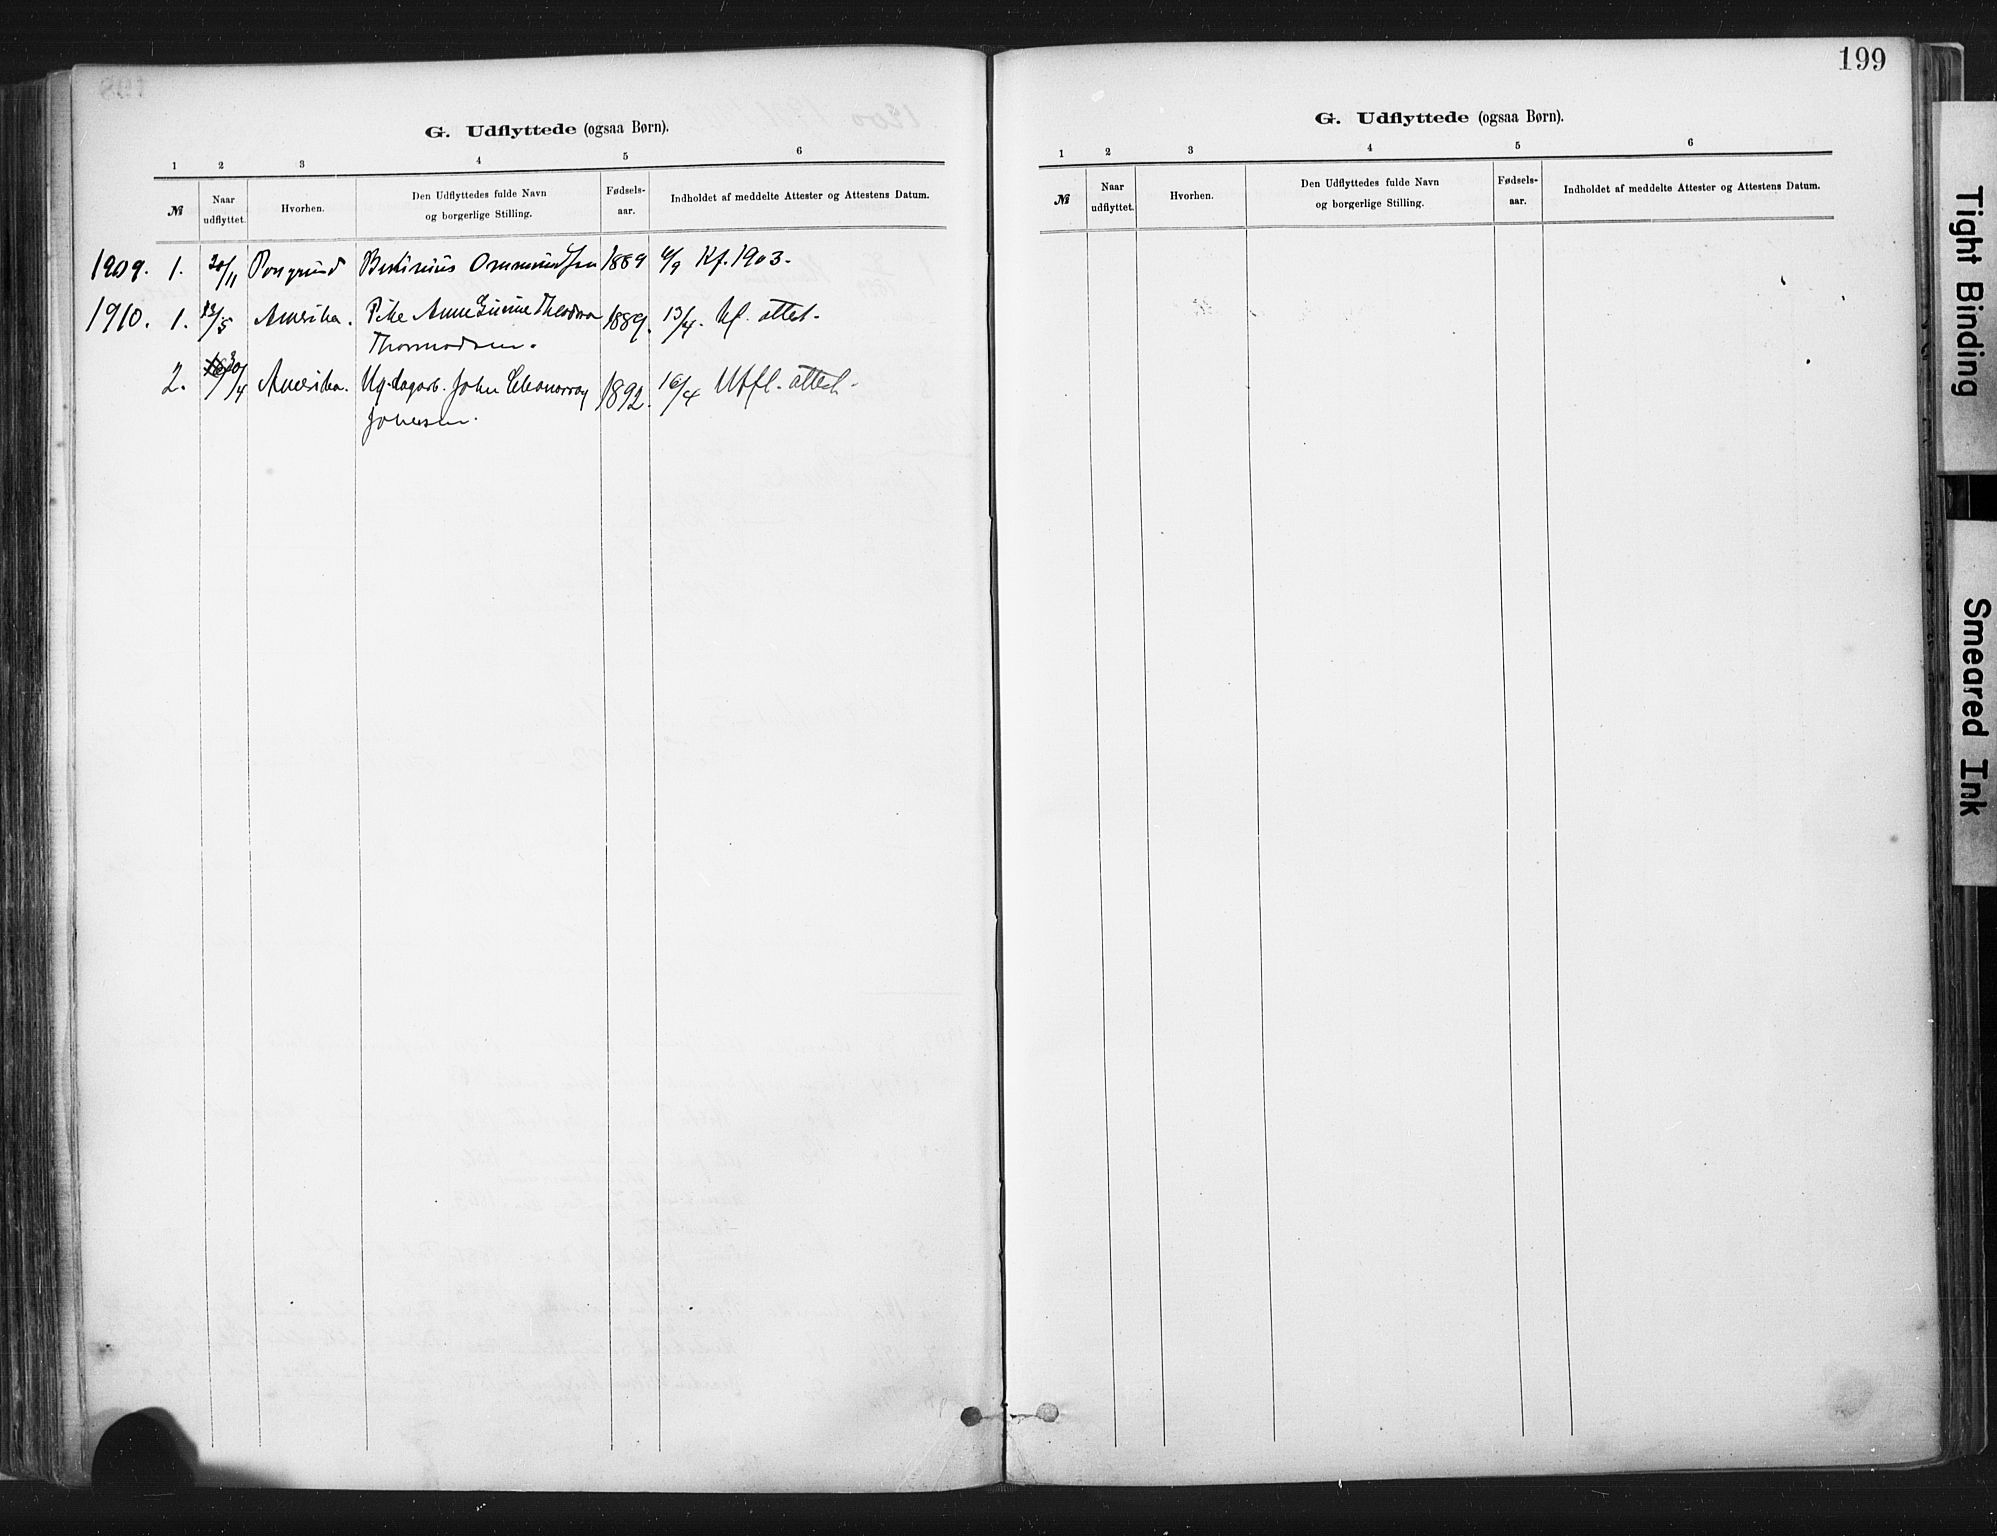 199
G. Udflyttede (ogsaa Børn).
1 2 3 4 5 6
№ Naar udflyttet. Hvorhen. Den Udflyttedes fulde Navn og borgerlige Stilling. Fødsels-aar. Indholdet af meddelte Attester og Attestens Datum.
1909. 1. 20/11 Porsgrund Ommundsen 1889 6/9 Kf. 1903.
1910. 1. 13/5 Amerika. Pike Anne Theodora 1889. 13/4. Ufl. attest.
Thormodsen.
2. 30/4 Amerika. Ug. dagarb. John 1892. 16/4 Utfl. attest.
Johnsen.
G. Udflyttede (ogsaa Børn).
1 2 3 4 5 6
№ Naar udflyttet. Hvorhen. Den Udflyttedes fulde Navn og borgerlige Stilling. Fødsels-aar. Indholdet af meddelte Attester og Attestens Datum.
Tight Binding
Smeared Ink